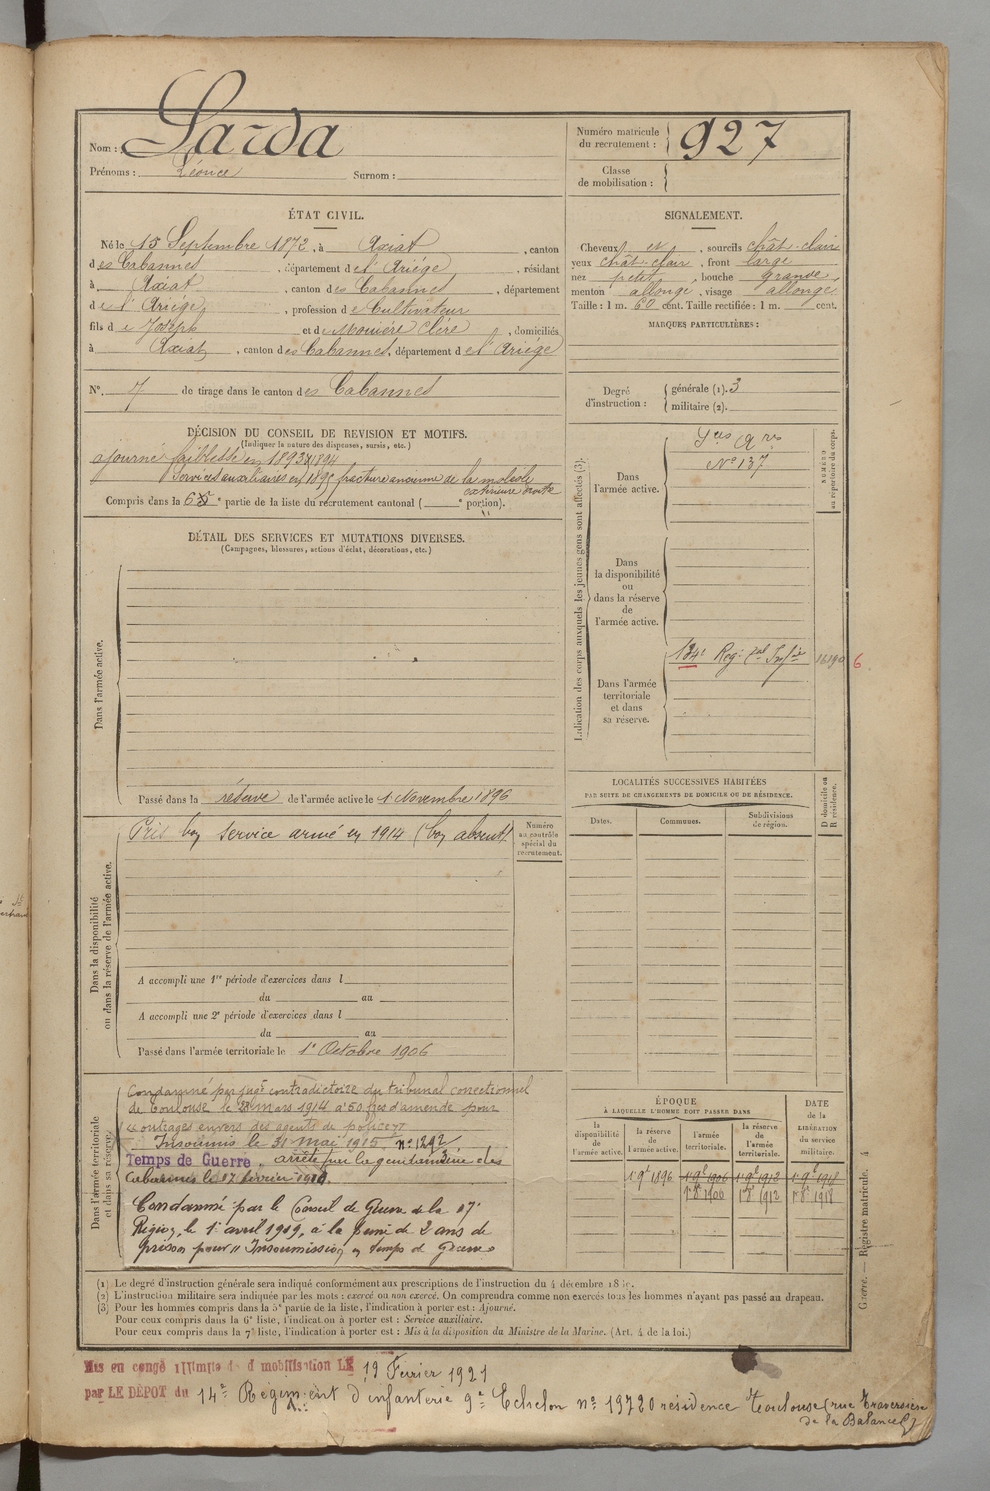 Nom : Larda
Prénoms : Léonce Surnom :
Numéro matricule du recrutement : 927
Classe de mobilisation :
ÉTAT CIVIL.
Né le 15 Septembre 1872, à Axiat, canton
des Cabannes, département de l'Ariège, résidant
à Axiat, canton des Cabannes, département
de l'Ariège, profession de Cultivateur
fils de Joseph et de Mounère Clère, domiciliés
à Axiat, canton des Cabannes, département de l'Ariège
N°. 7 de tirage dans le canton des Cabannes
SIGNALEMENT.
Cheveux et, sourcils chât-clair
yeux chât-clair, front large
nez petit, bouche grande
menton allongé, visage allongé
Taille : 1 m. 60 cent. Taille rectifiée : 1 m. cent.
MARQUES PARTICULIÈRES :
Degré d'instruction : générale (1). 3
militaire (2).
DÉCISION DU CONSEIL DE REVISION ET MOTIFS.
(Indiquer la nature des dispenses, sursis, etc.)
ajourné faiblesse en 1893 1894
Services auxiliaires en 1895 fracture ancienne de la maléole
extérieure droite
Compris dans la 6e partie de la liste du recrutement cantonal ( e portion).
DÉTAIL DES SERVICES ET MUTATIONS DIVERSES.
(Campagnes, blessures, actions d'éclat, décorations, etc.)
Dans l'armée active.
Passé dans la réserve de l'armée active le 1 Novembre 1896
Dans la disponibilité
ou dans la réserve de l'armée active.
Pris bon service armé en 1914 (bon absent)
Numéro
au contrôle
spécial du
recrutement.
A accompli une 1re période d'exercices dans l
du au
A accompli une 2e période d'exercices dans l
du au
Passé dans l'armée territoriale le 1er Octobre 1906
Dans l'armée territoriale
et dans sa réserve.
Condamné par jugt contradictoire du tribunal correctionnel
de Toulouse le 28 mars 1914 à 50 frcs d'amende pour
"outrages envers des agents de police"
Insoumis le 31 mai 1915 n° 1292
Temps de Guerre arrêté par la gendarmerie des
Cabannes le 17 février 1919.
Condamné par le Conseil de Guerre de la 17e
Région, le 1er avril 1919, à la peine de 2 ans de
prison pour "Insoumission en temps de Guerre"
Indication des corps auxquels les jeunes gens sont affectés (3).
NUMÉRO
au répertoire du corps.
Dans
l'armée active.
Sces Ares
N° 137
Dans
la disponibilité
ou
dans la réserve
de
l'armée active.
Dans l'armée
territoriale
et dans
sa réserve.
134e Regt tal Infie
LOCALITÉS SUCCESSIVES HABITÉES
PAR SUITE DE CHANGEMENTS DE DOMICILE OU DE RÉSIDENCE.
D domicile ou
R résidence.
Dates. Communes. Subdivisions de région.
ÉPOQUE
À LAQUELLE L'HOMME DOIT PASSER DANS
DATE
de la
LIBÉRATION
du service
militaire.
la disponibilité de l'armée active. la réserve de l'armée active. l'armée territoriale. la réserve de l'armée territoriale.
1 9bre 1896 1 9bre 1906 1 9bre 1912 1 9bre 1918
1er 8bre 1906 1er 8bre 1912 1er 8bre 1918
(1) Le degré d'instruction générale sera indiqué conformément aux prescriptions de l'instruction du 4 décembre
(2) L'instruction militaire sera indiquée par les mots : exercé ou non exercé. On comprendra comme non exercés tous les hommes n'ayant pas passé au drapeau.
(3) Pour les hommes compris dans la 5e partie de la liste, l'indication à porter est : Ajourné.
Pour ceux compris dans la 6e liste, l'indication à porter est : Service auxiliaire.
Pour ceux compris dans la 7e liste, l'indication à porter est : Mis à la disposition du Ministre de la Marine. (Art. 4 de la loi.)
Guerre. — Registre matricule. 4
Mis en congé illimité de démobilisation LE 19 Fevrier 1921
par LE DÉPOT du 14e Régiment d'infanterie 9e Echelon n° 19720 résidence Toulouse (rue Traversière
de la Balance 2)